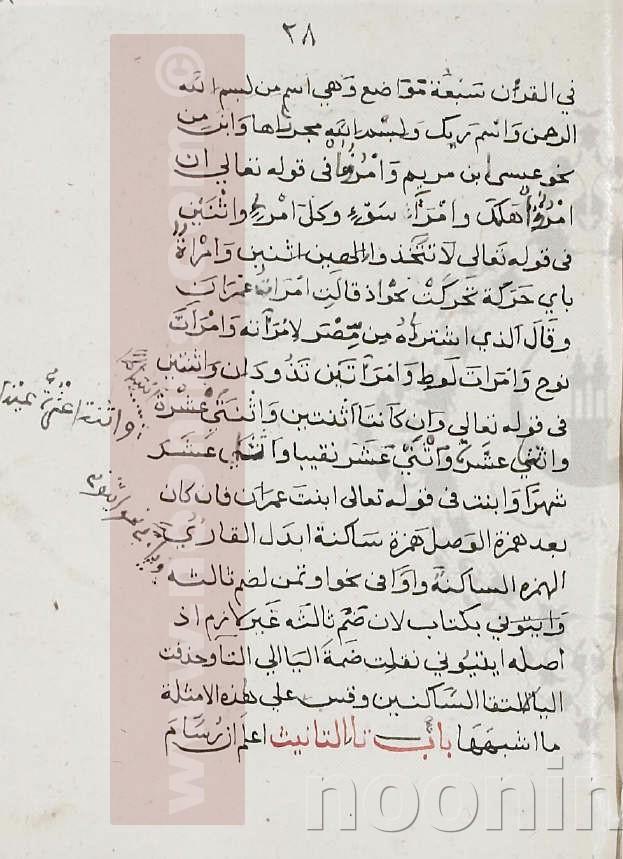 ٢٨
في القرآن سبعة مواضع وهي اسم من لبسم الله
الرحمن واسم ربك ولبسم الله مجراها وابن من
نحو عيسى ابن مريم وامرؤا في قوله تعالى ان
امرؤا هلك وامرأ سوء وكل امرئ واثنين
في قوله تعالى لا تتخذوا الهين اثنين وامرأة
باي حركة تحركت نحو اذ قالت امرات عمران
وقال الذي اشتراه من مصر لامرأته وامرات
نوح وامرات لوط وامرأتين تذودان واثنتين
في قوله تعالى وان كانتا اثنتين واثنتي عشرة
واثني عشر واثني عشر نقيبا واثنى عشر
شهرا وابنت في قوله تعالى ابنت عمران فان كان
بعد همزة الوصل همزة ساكنة ابدل القاري
الهمزة الساكنة واوا في نحو اوتمن لضم ثالثه
وايتوني بكتاب لان ضم ثالثه غير لازم اذ
اصله ايتيوني نقلت ضمة اليا الى التا وحذفت
اليا لالتقا الساكنين وقس على هذه الامثلة
ما اشبهها باب تا التانيث اعلم ان رسام
noonin